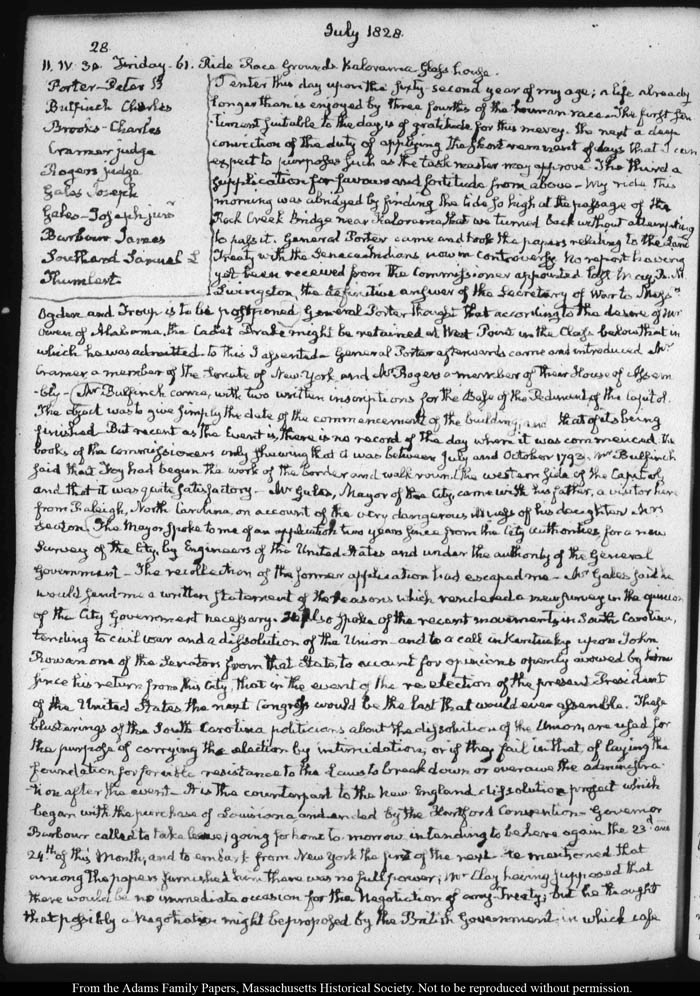 July 1828.
28.
11. IV. 30. Friday. 61. Ride Race Grounds Kalorama Glass house.
Porter - Peter B
Bulfinch Charles
Brooks - Charles
Cramer judge
Rogers judge
Gales Joseph
Gales - Joseph junr
Barbour James
Southard Samuel L
Thumlert
I enter this day upon the sixty second year of my age; a life already
longer than is enjoyed by three fourths of the human race. The first sen-
timent suitable to the day is of gratitude for this mercy. The next a deep
conviction of the duty of applying the short remnant of days that I can
expect to purposes such as the task master may approve. The third a
supplication for favours and fortitude from above - My ride this
morning was abridged by finding the tide so high at the passage of the
Rock Creek Bridge near Kalorama, that we turned back without attempting
to pass it. General Porter came and took the papers relating to the
Treaty with the Seneca Indians now in controversy. No report having
yet been received from the Commissioner appointed
Livingston, the definitive answer of the Secretary of War to Messrs
Ogden and Troup is to be postponed. General Porter thought that according to the desire of Mr
Owen of Alabama, the Cadet Drake might be retained at West Point in the Class below that in
which he was admitted - to this I assented - General Porter afterwards came and introduced Mr
Cramer a member of the Senate of New York and Mr Rogers a member of their House of Assem
-bly - Mr Bulfinch came, with two written inscriptions for the Base of the Pediment of the Capitol.
The object was to give simply the date of the commencement of the building, and that of its being
finished. But recent as the Event is, there is no record of the day when it was commenced. The
books of the Commissioners only shewing that it was between July and October 1793. Mr Bulfinch
said that Foy had begun the work of the border and walk round the western side of the Capitol,
and that it was quite satisfactory - Mr Gales, Mayor of the City, came with his father, a visitor here
from Raleigh, North Carolina, on account of the very dangerous illness of his daughter Mrs
Seaton. The Mayor spoke to me of an application two years since from the City authorities, for a new
Survey of the City, by Engineers of the United States and under the authority of the General
Government - The recollection of the former application had escaped me - Mr Gales said he
would send me a written statement of the reasons which rendered a new survey in the opinion
of the City Government necessary. He also spoke of the recent movements in South Carolina,
tending to civil war and a dissolution of the Union - and to a call in Kentucky upon John
Rowan one of the Senators from that State, to account for opinions openly avowed by him
since his return from this City, that in the event of the re-election of the present President
of the United States the next Congress would be the last that would ever assemble. These
blusterings of the South Carolina politicians about the dissolution of the Union, are used for
the purpose of carrying the election by intimidation, or if they fail in that, of laying the
foundation for forcible resistance to the Laws to break down or overawe the administra
-tion after the event - It is the counterpart to the New England dissolution project which
began with the purchase of Louisiana, and ended by the Hartford Convention - Governor
Barbour called to take leave; going for home to-morrow, intending to be here again the 23d and
24th of this Month, and to embark from New York the first of the next - He mentioned that
among the papers furnished him there was no full power; Mr Clay having supposed that
there would be no immediate occasion for the Negotiation of any Treaty; but he thought
that possibly a Negotiation might be proposed by the British Government - in which case
From the Adams Family Papers, Massachusetts Historical Society. Not to be reproduced without permission.